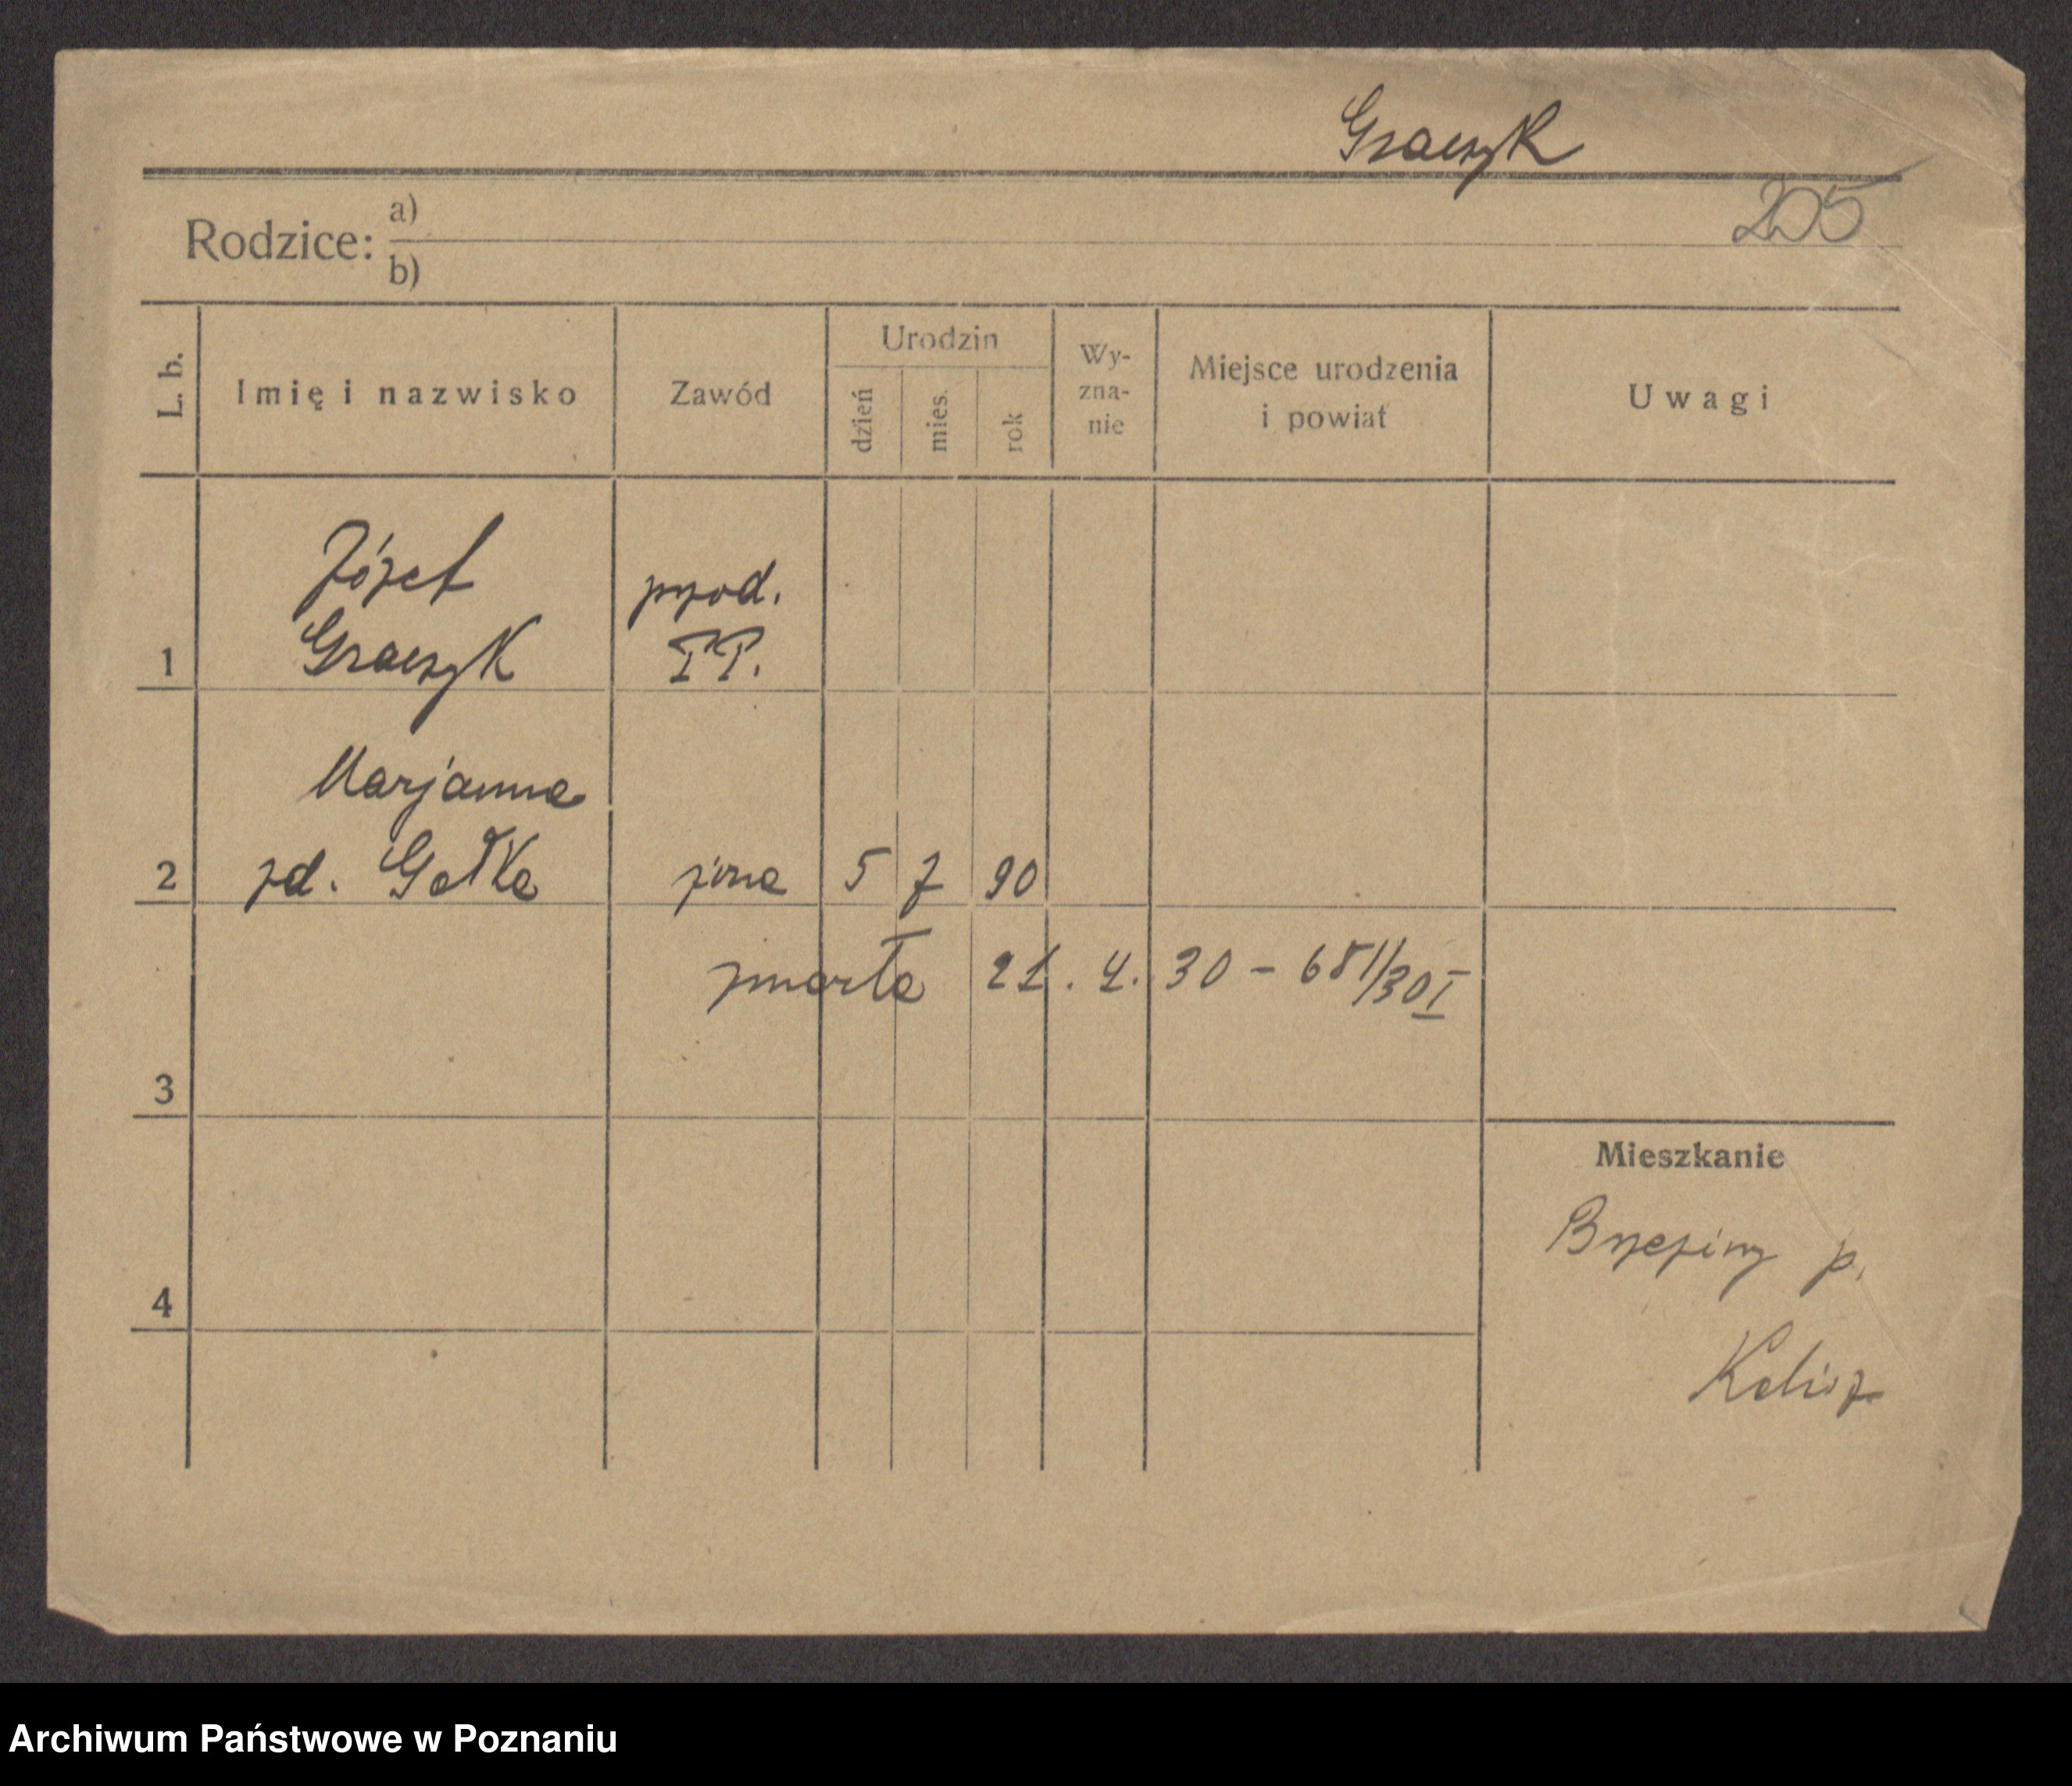 Graczyk
205
Rodzice: a)
b)
L. b. Imię i nazwisko Zawód Urodzin dzień mies. rok Wy-zna-nie Miejsce urodzenia i powiat Uwagi
Józef
Graczyk
przod.
PP.
1
Marjanna
zd. Gałka żona 5 7 90
2
zmarła 21. 4. 30 - 681/30 I
3
Mieszkanie
Brzeziny p.
Kalisz
4
Archiwum Państwowe w Poznaniu